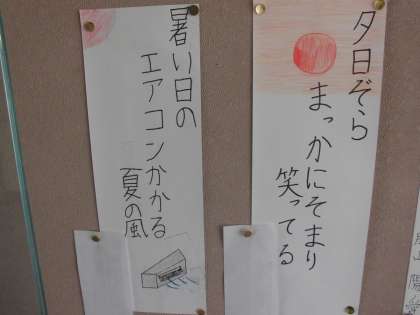 夕日ぞら
まっかにそまり
笑ってる
暑い日の
エアコンかかる
夏の風